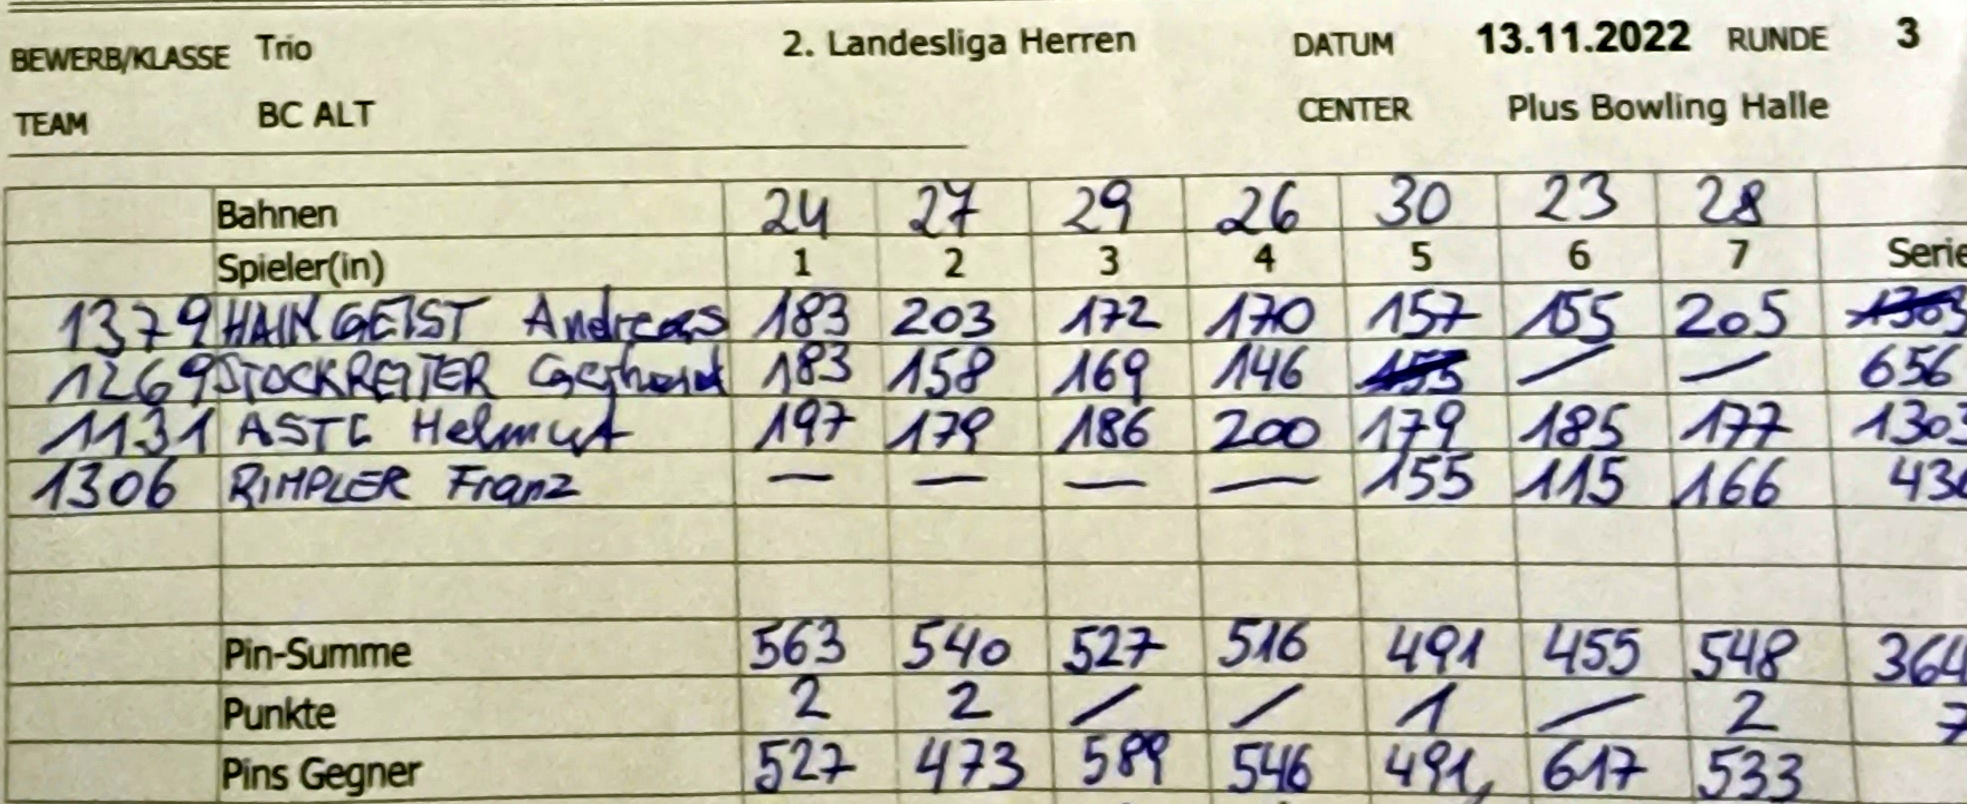 BEWERB/KLASSE Trio 2. Landesliga Herren DATUM 13.11.2022 RUNDE 3
TEAM BC ALT CENTER Plus Bowling Halle
Bahnen 24 27 29 26 30 23 28
Spieler(in) 1 2 3 4 5 6 7 Serie
1379 HAINGEIST Andreas 183 203 172 170 157 155 205
1269 STOCKREITER Gerhard 183 158 169 146 155 / / 656
1131 ASTL Helmut 197 179 186 200 179 185 177 1303
1306 RIMPLER Franz — — — — 155 115 166 436
Pin-Summe 563 540 527 516 491 455 548 364
Punkte 2 2 / / 1 / 2 7
Pins Gegner 527 473 589 546 491, 617 533